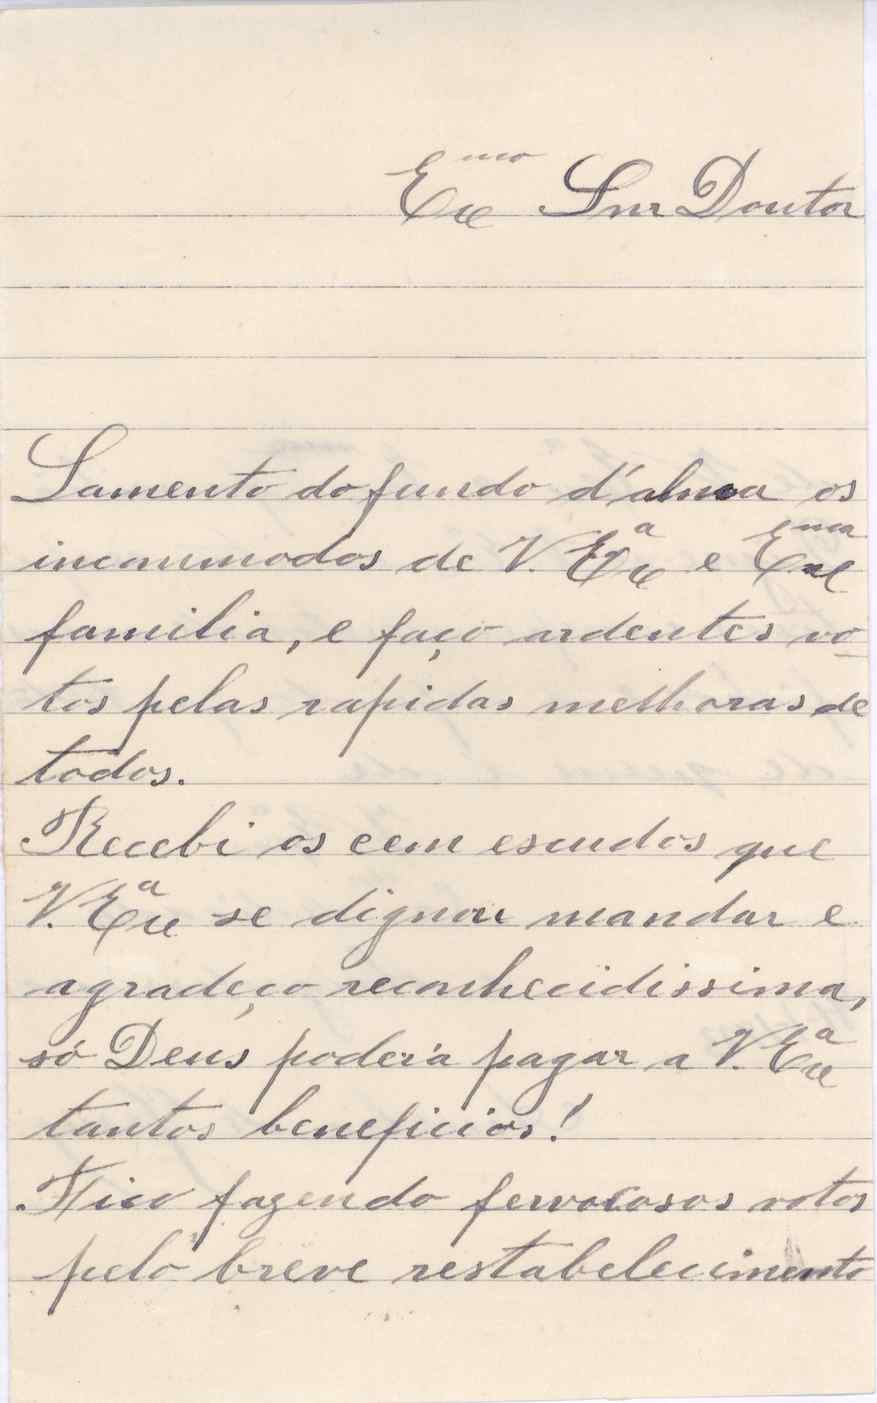 Exc.mo Snr Doutor
Lamento do fundo d'alma os
incommodos de V. Exc.a e Exc.ma
familia, e faço ardentes vo-
tos pelas rapidas melhoras de
todos.
Recebi os cem escudos que
V. Exc.a se dignou mandar e
agradeço reconhecidissima,
só Deus poderá pagar a V. Exc.a
tantos beneficios!
Fico fazendo fervorosos votos
pelo breve restabelecimento